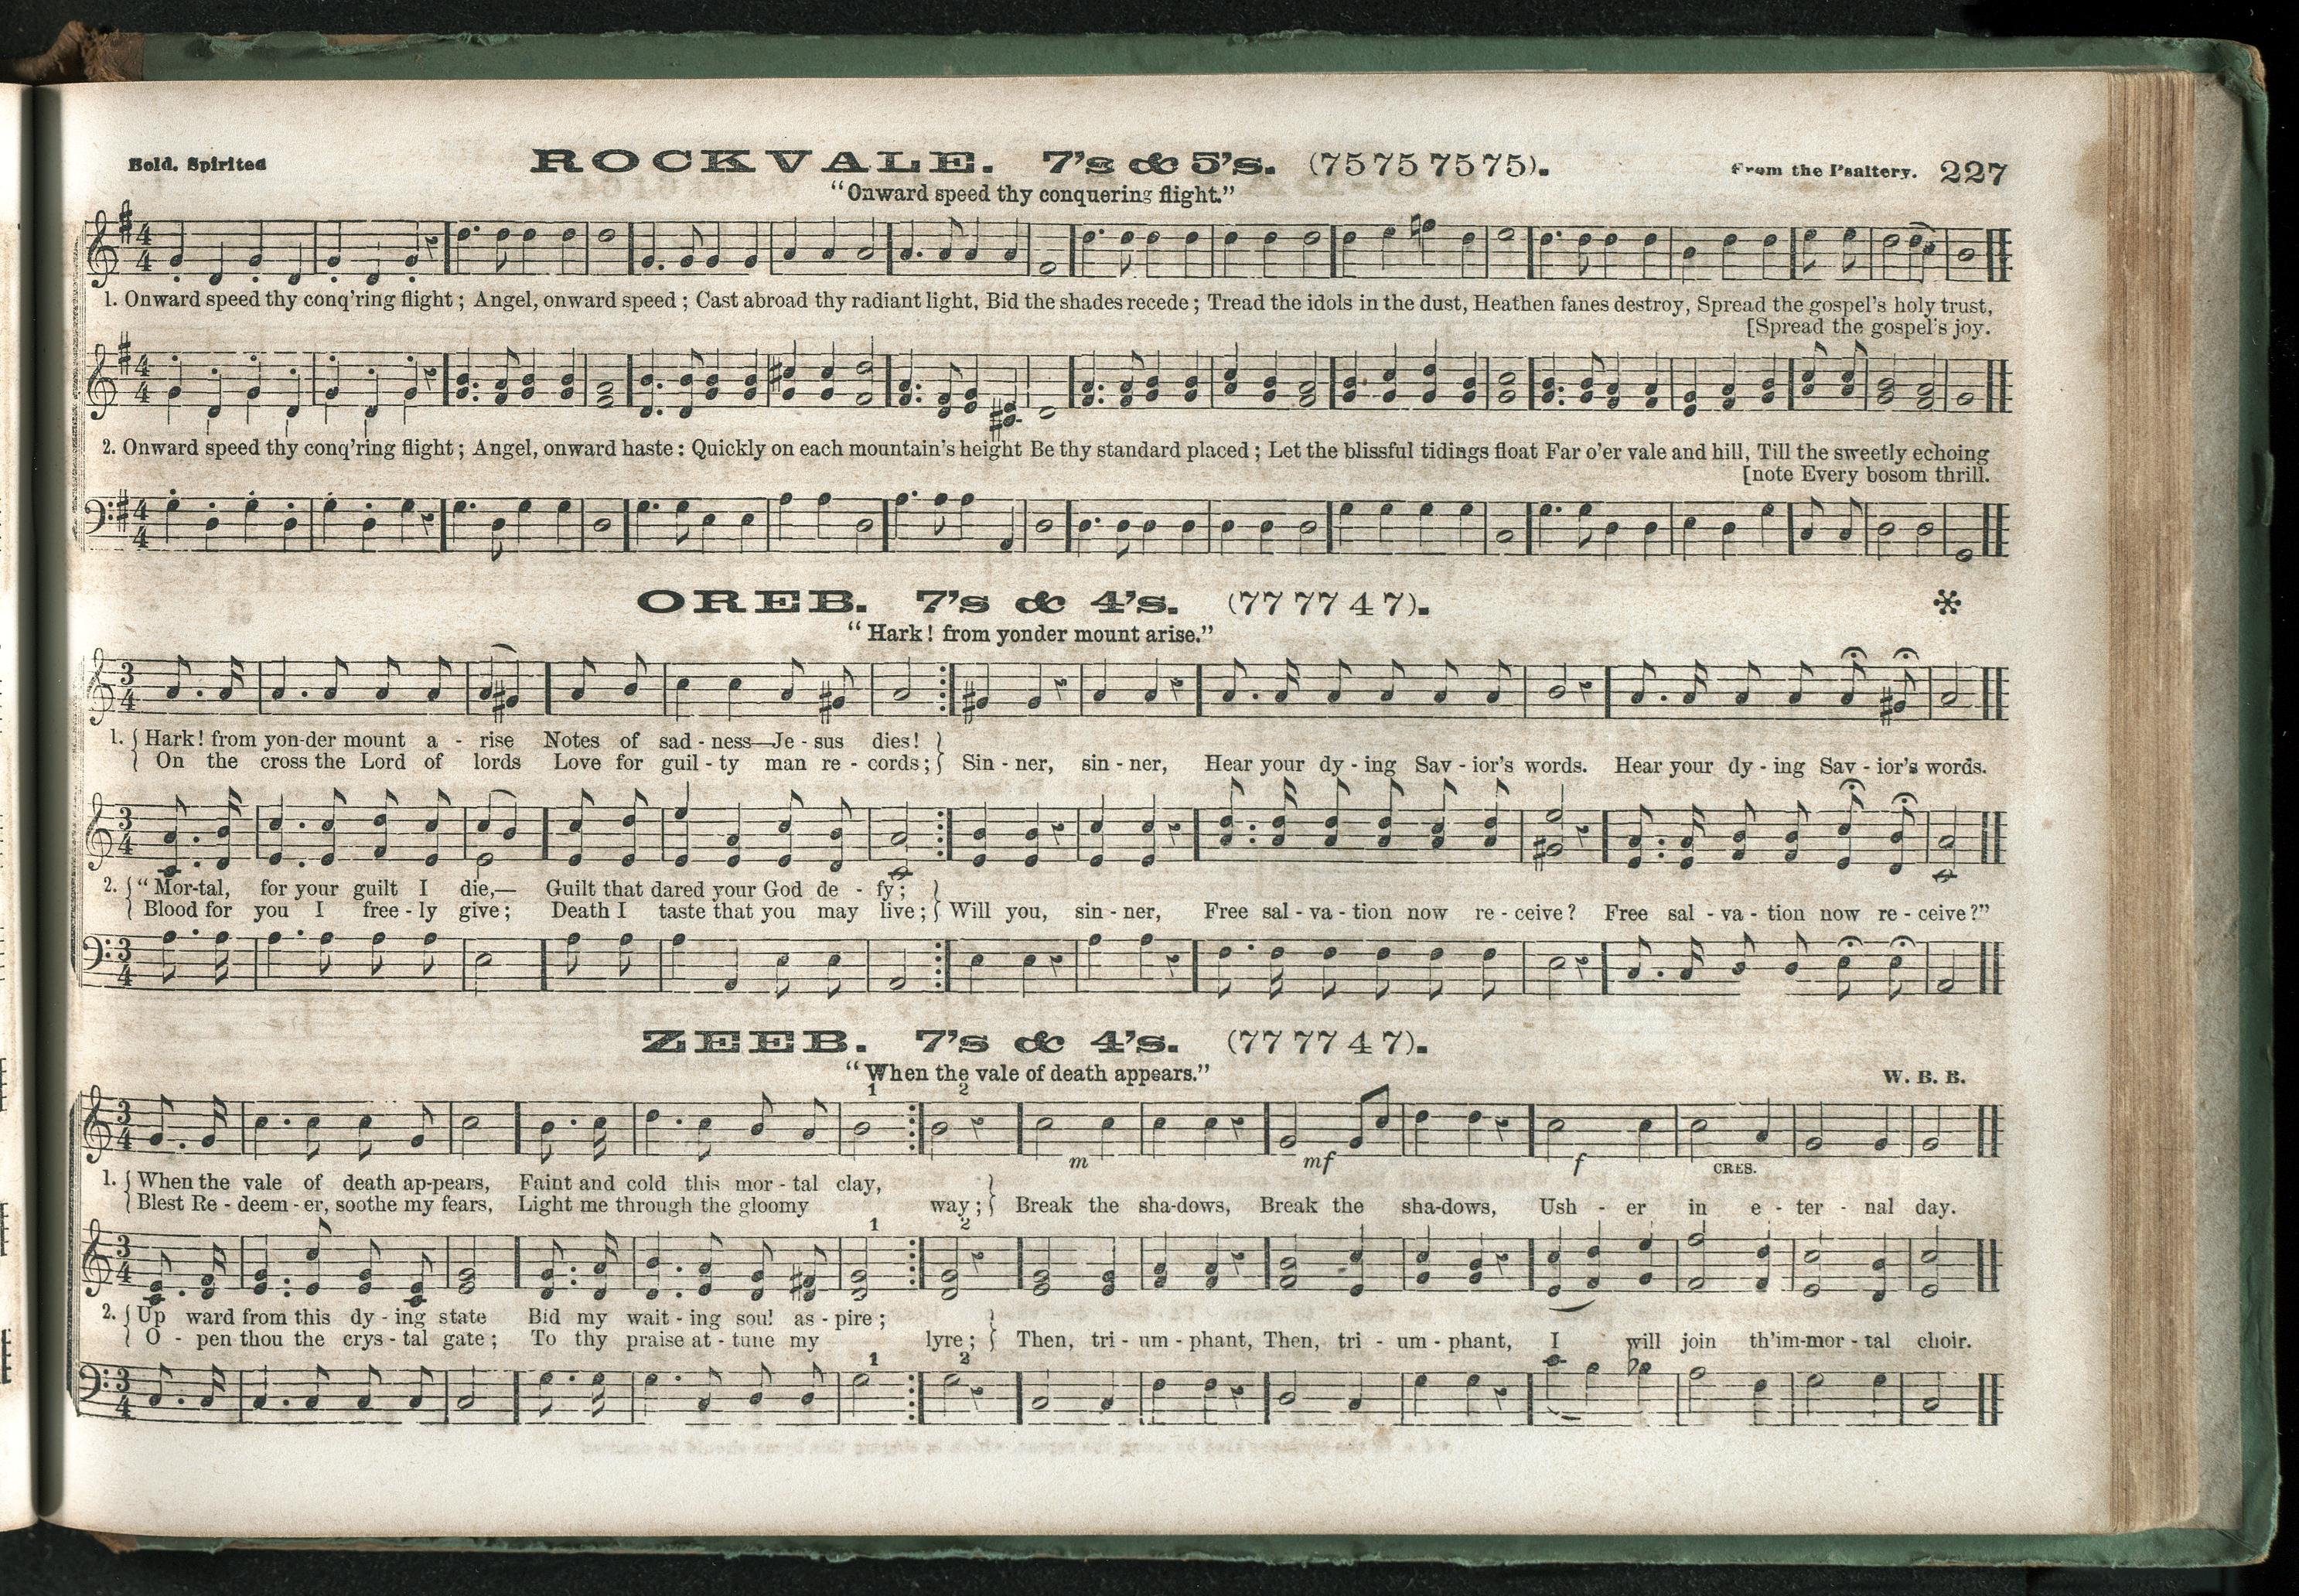 Bold. Spirited
ROCKVALE. 7's & 5's. (75 75 75 75).
From the Psaltery. 227
"Onward speed thy conquering flight."
4
4
1. Onward speed thy conq'ring flight; Angel, onward speed; Cast abroad thy radiant light, Bid the shades recede; Tread the idols in the dust, Heathen fanes destroy, Spread the gospel's holy trust,
[Spread the gospel's joy.
4
4
2. Onward speed thy conq'ring flight; Angel, onward haste: Quickly on each mountain's height Be thy standard placed; Let the blissful tidings float Far o'er vale and hill, Till the sweetly echoing
[note Every bosom thrill.
4
4
OREB. 7's & 4's. (77 77 4 7). *
"Hark! from yonder mount arise."
3
4
1. { Hark! from yon-der mount a - rise Notes of sad - ness—Je - sus dies! }
{ On the cross the Lord of lords Love for guil - ty man re - cords; } Sin - ner, sin - ner, Hear your dy - ing Sav - ior's words. Hear your dy - ing Sav - ior's words.
3
4
2. { "Mor-tal, for your guilt I die,— Guilt that dared your God de - fy; }
{ Blood for you I free - ly give; Death I taste that you may live; } Will you, sin - ner, Free sal - va - tion now re - ceive? Free sal - va - tion now re - ceive?"
3
4
ZEEB. 7's & 4's. (77 77 4 7).
"When the vale of death appears."
W. B. B.
1 2
3
4
m mf f CRES.
1. { When the vale of death ap-pears, Faint and cold this mor - tal clay, }
{ Blest Re - deem - er, soothe my fears, Light me through the gloomy way; } Break the sha-dows, Break the sha-dows, Ush - er in e - ter - nal day.
1 2
3
4
2. { Up ward from this dy - ing state Bid my wait - ing soul as - pire; }
{ O - pen thou the crys - tal gate; To thy praise at - tune my lyre; } Then, tri - um - phant, Then, tri - um - phant, I will join th'im-mor - tal choir.
1 2
3
4